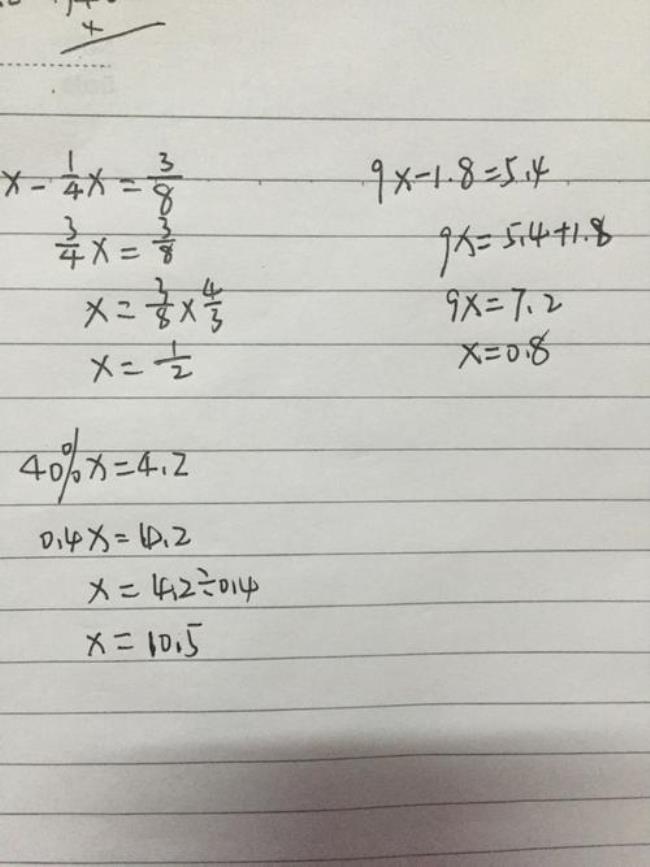 x - 1/4 x = 3/8
3/4 x = 3/8
x = 3/8 × 4/3
x = 1/2
9x-1.8=5.4
9x=5.4+1.8
9x=7.2
x=0.8
40%x=4.2
0.4x=4.2
x=4.2÷0.4
x=10.5